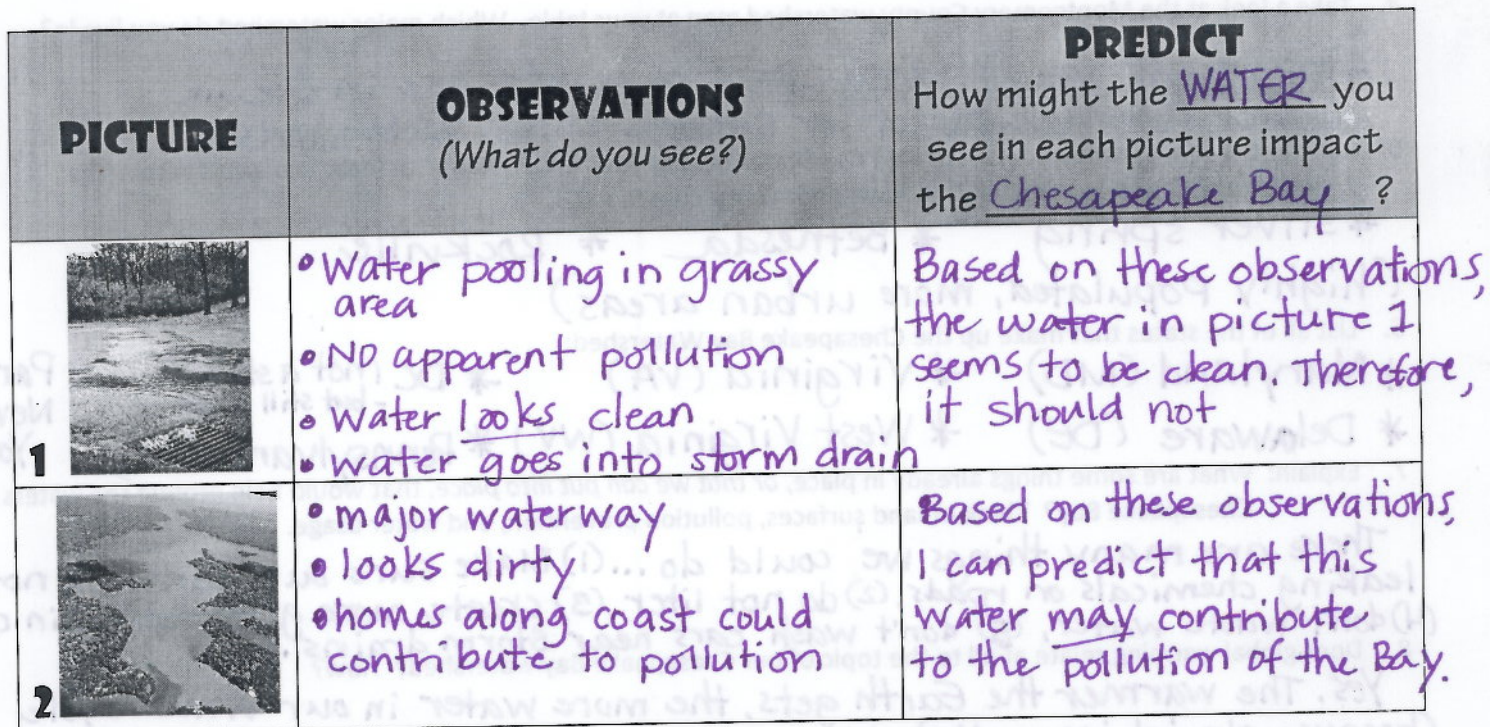 PICTURE
OBSERVATIONS
(What do you see?)
PREDICT
How might the WATER you
see in each picture impact
the Chesapeake Bay ?
1
• Water pooling in grassy
area
• No apparent pollution
• Water looks clean
• water goes into storm drain
Based on these observations,
the water in picture 1
seems to be clean. Therefore,
it should not
2
• major waterway
• looks dirty
• homes along coast could
contribute to pollution
Based on these observations,
I can predict that this
water may contribute
to the pollution of the Bay.